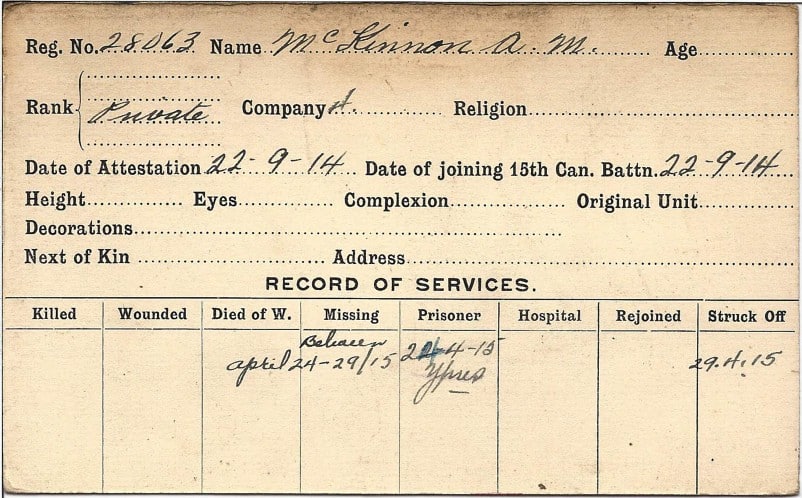 Reg. No. 28063 Name McKinnon A. M. Age
Rank Private Company 4. Religion
Date of Attestation 22-9-14 Date of joining 15th Can. Battn. 22-9-14
Height Eyes Complexion Original Unit
Decorations
Next of Kin Address
RECORD OF SERVICES.
Killed Wounded Died of W. Missing Prisoner Hospital Rejoined Struck Off
Between
april 24-29/15 24-4-15 29.4.15
Ypres